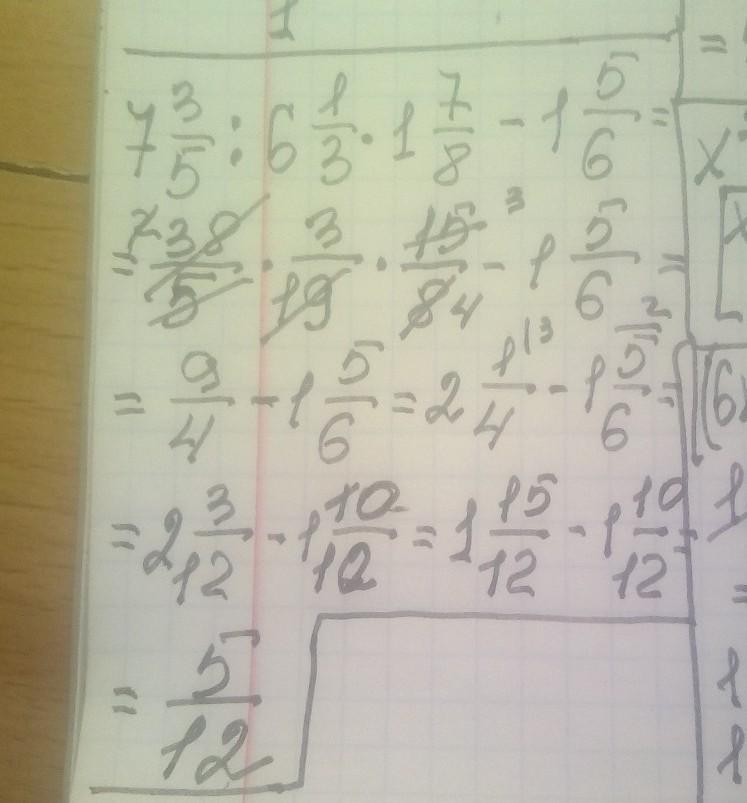 1
7 3/5 : 6 1/3 · 1 7/8 - 1 5/6 =
= 2 38/5 · 3/19 · 15/8 3 4 - 1 5/6 =
= 9/4 - 1 5/6 = 2 1/4 (3 - 1 5/6 (2 =
= 2 3/12 - 1 10/12 = 1 15/12 - 1 10/12 =
= 5/12
=
x
[x
(6
1
=
1
1